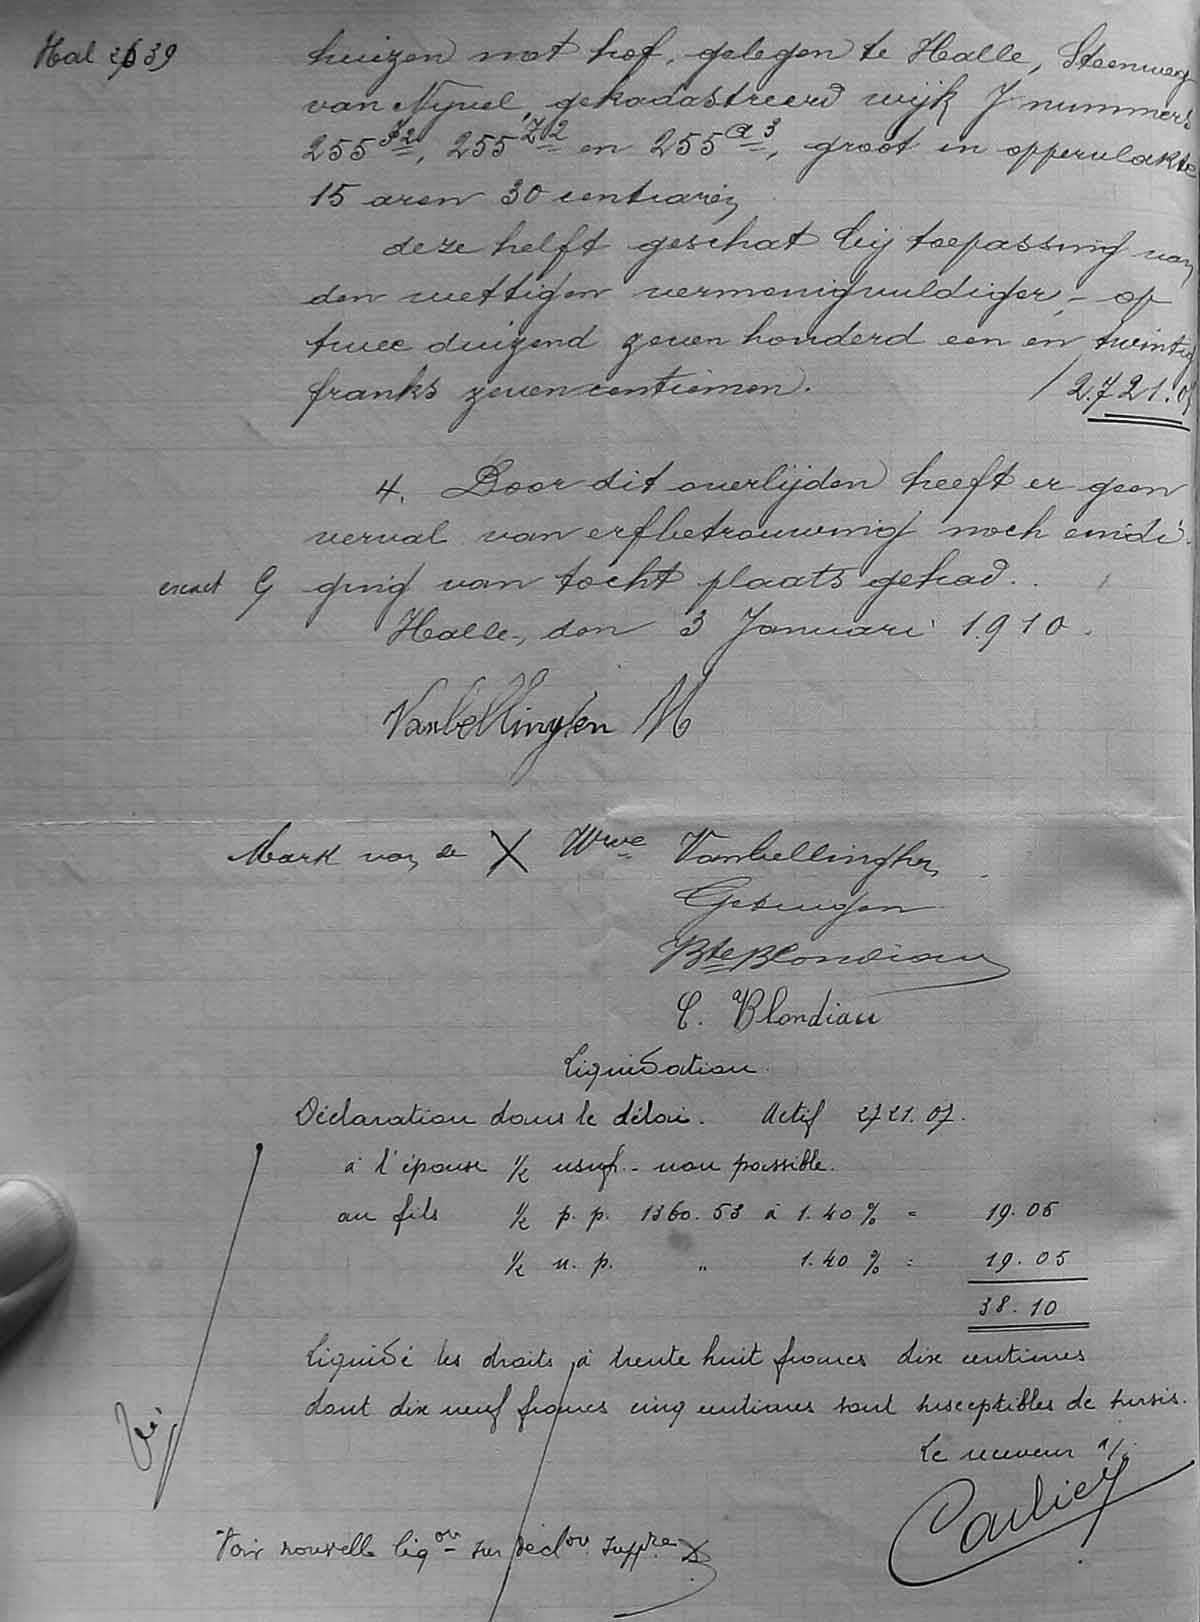 Hal 2639
huizen met hof, gelegen te Halle, Steenweg
van Nyvel, gekadastreerd wijk J nummers
255 y2, 255 z2 en 255 a3, groot in oppervlakte
15 aren 30 centiaren,
deze helft geschat bij toepassing van
den wettigen vermenigvuldiger, - op
twee duizend zeven honderd een en twintig
franks zeven centiemen. / 2.721.07
4. Door dit overlijden heeft er geen
verval van erfbetrouwing noch eindi-
exact G ging van tocht plaats gehad.
Halle, den 3 Januari 1910.
Vanbellinghen M
Mark van de X Wwe Vanbellinghen
Getuigen
Bte Blondiau
C. Blondiau
Liquidation
Déclaration dans le délai. Actif 2721.07.
à l'épouse 1/2 usuf. - non passible.
au fils 1/2 p. p. 1360.53 à 1.40 % = 19.05
1/2 n. p. " 1.40 % = 19.05
38.10
Liquidé les droits à trente huit francs dix centimes
dont dix neuf francs cinq centimes sont susceptibles de sursis.
Le receveur a/i
Carlier
Voir nouvelle liqon sur déclon suppre